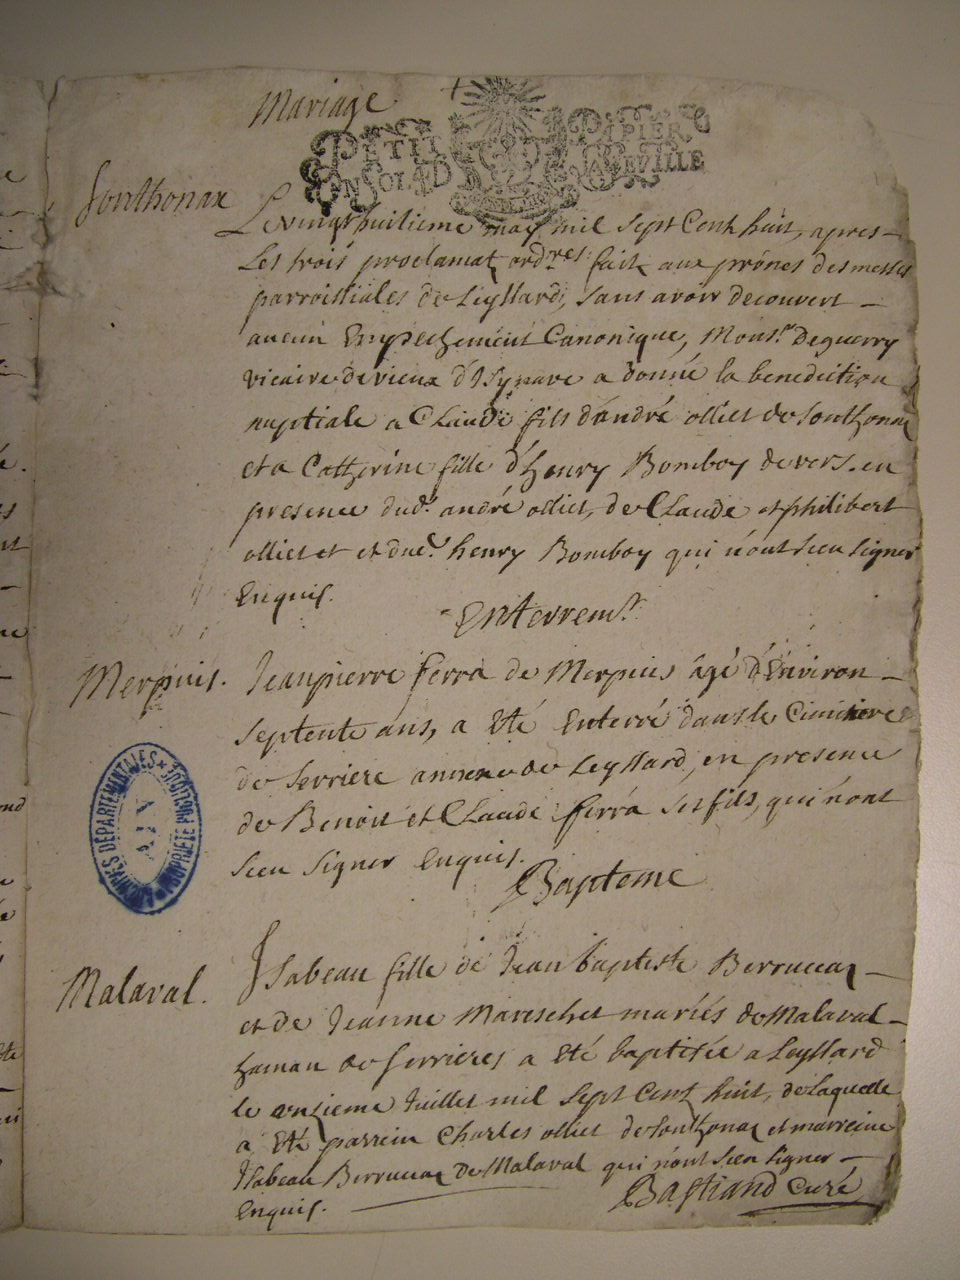 Mariage
PETIT PAPIER
CONSOLAD NAVEVILLE
Sonthonax
Le vingt huitieme may mil sept Cent huit, apres
Les trois proclamat. ordres fait aux prônes des messes
parroissiales de Leyssard, sans avoir decouvert
aucun Empechement Canonique, Monsr Deguerry
vicaire de vieux d'Isynave a donné la benediction
nuptiale a Claude fils d'andré olliet de Sonthonax
et a Catherine fille d'henry Bomboy de vers. en
presence dud. andré olliet, de Claude et philibert
olliet et et dud. henry Bomboy qui n'ont sceu signer
Enquis.
Enterremt.
Merpuis.
Jeanpierre ferra de Merpuis âgé d'Environ
septente ans, a Eté Enterré dans le Cimitiere
de Serriere annexe de Leyssard, en presence
de Benoit et Claude ferra ses fils, qui n'ont
sceu signer Enquis.
Bapteme
Malaval.
Isabeau fille de Jean baptiste Berrucax
et de Jeanne Mareschet mariés de Malaval
hamau de Serrieres a Eté baptisée a Leyssard
le onzieme Juillet mil sept Cent huit, de Laquelle
a Eté parrein Charles olliet de Sonthonax et marreine
Isabeau Berrucax de Malaval qui n'ont sceu signer
Enquis.
Bastiand Curé
ARCHIVES DÉPARTEMENTALES
AIN
PROPRIÉTÉ PUBLIQUE